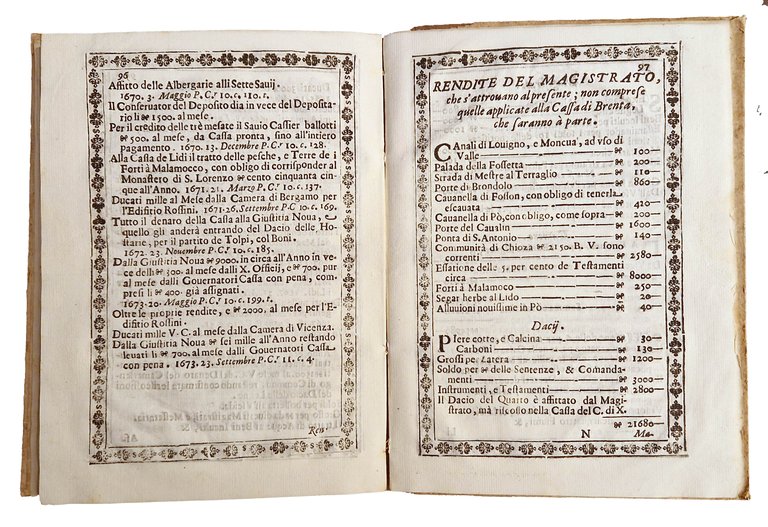 96
Affitto delle Albergarie alli Sette Savij.
1670. 3. Maggio P.C.º 10. c. 110. t.
Il Conservator del Deposito dia in vece del Depositario li ducati 1500. al mese.
Per il credito delle trè mesate il Savio Cassier ballotti
500. al mese, da Cassa pronta, sino all'intiero
pagamento. 1670. 13. Decembre P C.º 10. c. 128.
Alla Cassa de Lidi il tratto delle pesche, e Terre de i
Forti à Malamocco, con obligo di corrisponder al
Monastero di S. Lorenzo cento cinquanta cin-
que all'Anno. 1671. 21. Marzo P C.º 10. c. 137.
Ducati mille al Mese dalla Camera di Bergamo per
l'Edifitio Rossini. 1671. 26. Settembre P.C 10. c. 169.
Tutto il denaro della Cassa alla Giustitia Nova, e
quello gli anderà entrando del Dacio delle Ho-
starie, per il partito de Tolpi, col Boni.
1672. 23. Novembre P C.º 10. c. 185.
Dalla Giustitia Noua 9000. in circa all'Anno in ve-
ce delli 300. al mese dalli X. Officij, e 700. pur
al mese dalli Governatori Cassa con pena, com-
presi li 400. già assignati.
1673. 20. Maggio P C.º 10. c. 199. t.
Oltre le proprie rendite, e 2000. al mese per l'E-
difitio Rossini.
Ducati mille V. C. al mese dalla Camera di Vicenza.
Dalla Giustitia Noua sei mille all'Anno restando
leuati li 700. al mese dalli Gouernatori Cassa
con pena. 1673. 23. Settembre P C.º 11. c. 4.
Ren-
97
RENDITE DEL MAGISTRATO,
che s'attrovano al presente; non comprese
quelle applicate alla Cassa di Brenta,
che saranno à parte.
CAnali di Louigno, e Moncua, ad uso di
Valle 100
Palada della Fossetta 200
Strada di Mestre al Terraglio 110
Porte di Brondolo 860
Cauanella di Fosson, con obligo di tenerla
escauata 420
Cauanella di Pò, con obligo, come sopra 200
Porte del Caualin 1600
Ponta di S. Antonio 140
Communità di Chioza 2150. B. V. sono
correnti 2580
Essatione delle 5. per cento de Testamenti
circa 8000
Forti à Malamoco 250
Segar herbe al Lido 20
Alluuioni nouissime in Pò 40
Dacij.
PIere cotte, e Calcina 30
Carboni 130
Grossi per Zatera 1200
Soldo per delle Sentenze, & Comanda-
menti 3000
Instrumenti, e Testamenti 2800
Il Dacio del Quarto è affittato dal Magi-
strato, mà riscosso nella Cassa del C. di X.
21680
N
Ma-